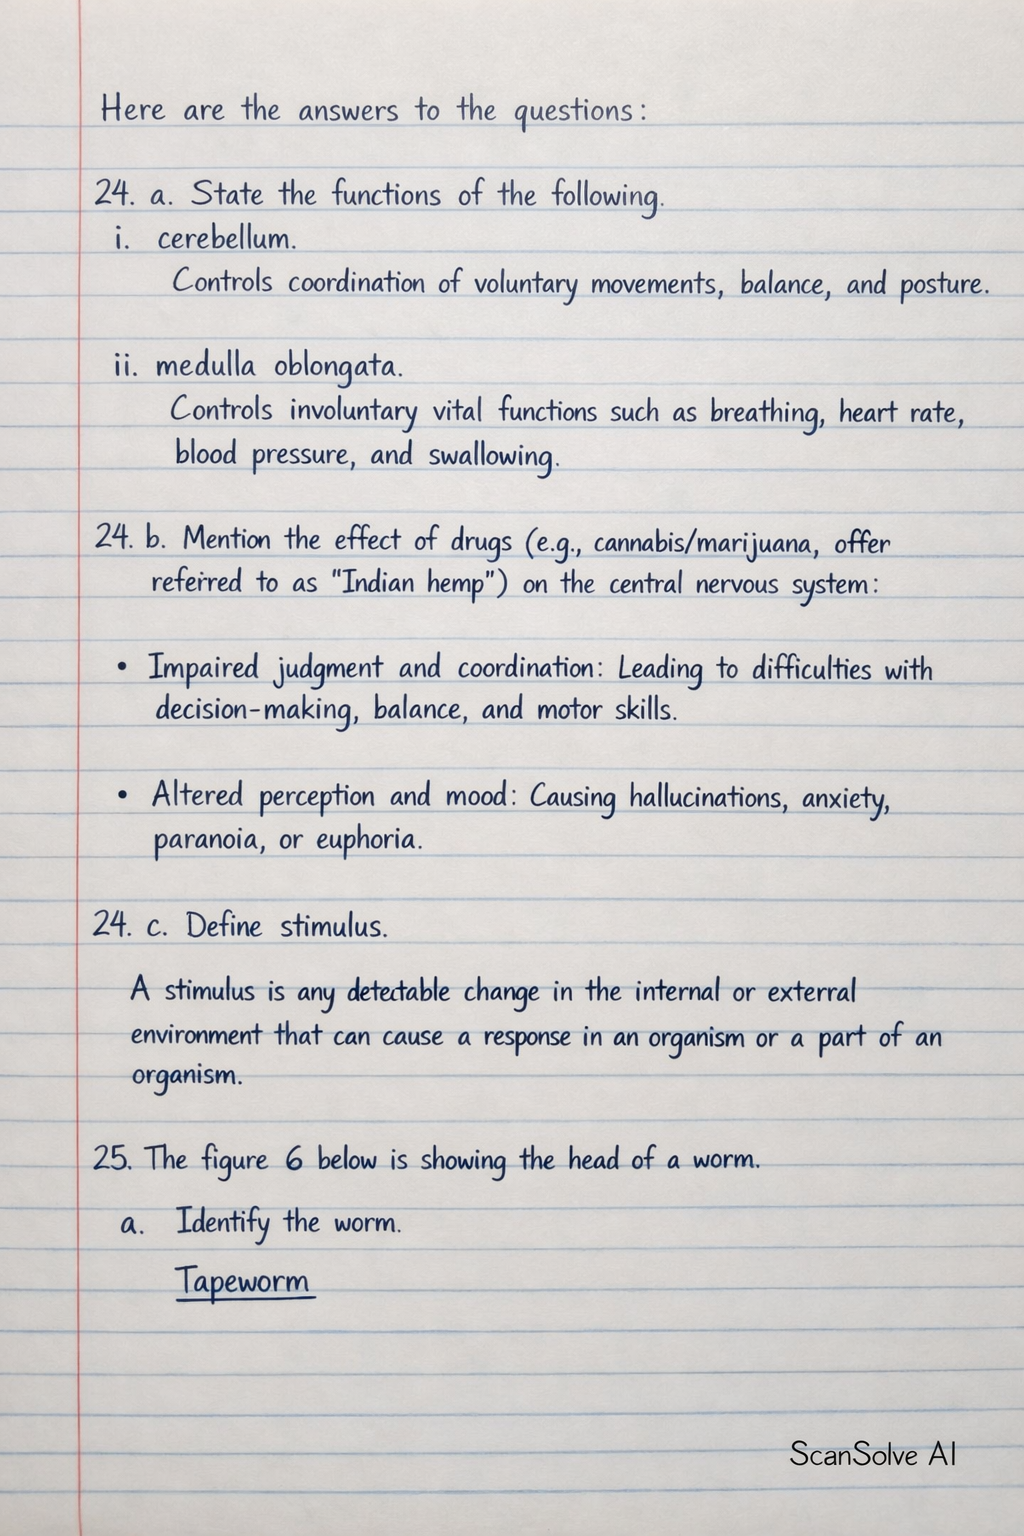 Here are the answers to the questions:
24. a. State the functions of the following.
i. cerebellum.
Controls coordination of voluntary movements, balance, and posture.
ii. medulla oblongata.
Controls involuntary vital functions such as breathing, heart rate,
blood pressure, and swallowing.
24. b. Mention the effect of drugs (e.g., cannabis/marijuana, offer
referred to as "Indian hemp") on the central nervous system:
• Impaired judgment and coordination: Leading to difficulties with
decision-making, balance, and motor skills.
• Altered perception and mood: Causing hallucinations, anxiety,
paranoia, or euphoria.
24. c. Define stimulus.
A stimulus is any detectable change in the internal or exterral
environment that can cause a response in an organism or a part of an
organism.
25. The figure 6 below is showing the head of a worm.
a. Identify the worm.
Tapeworm
ScanSolve AI